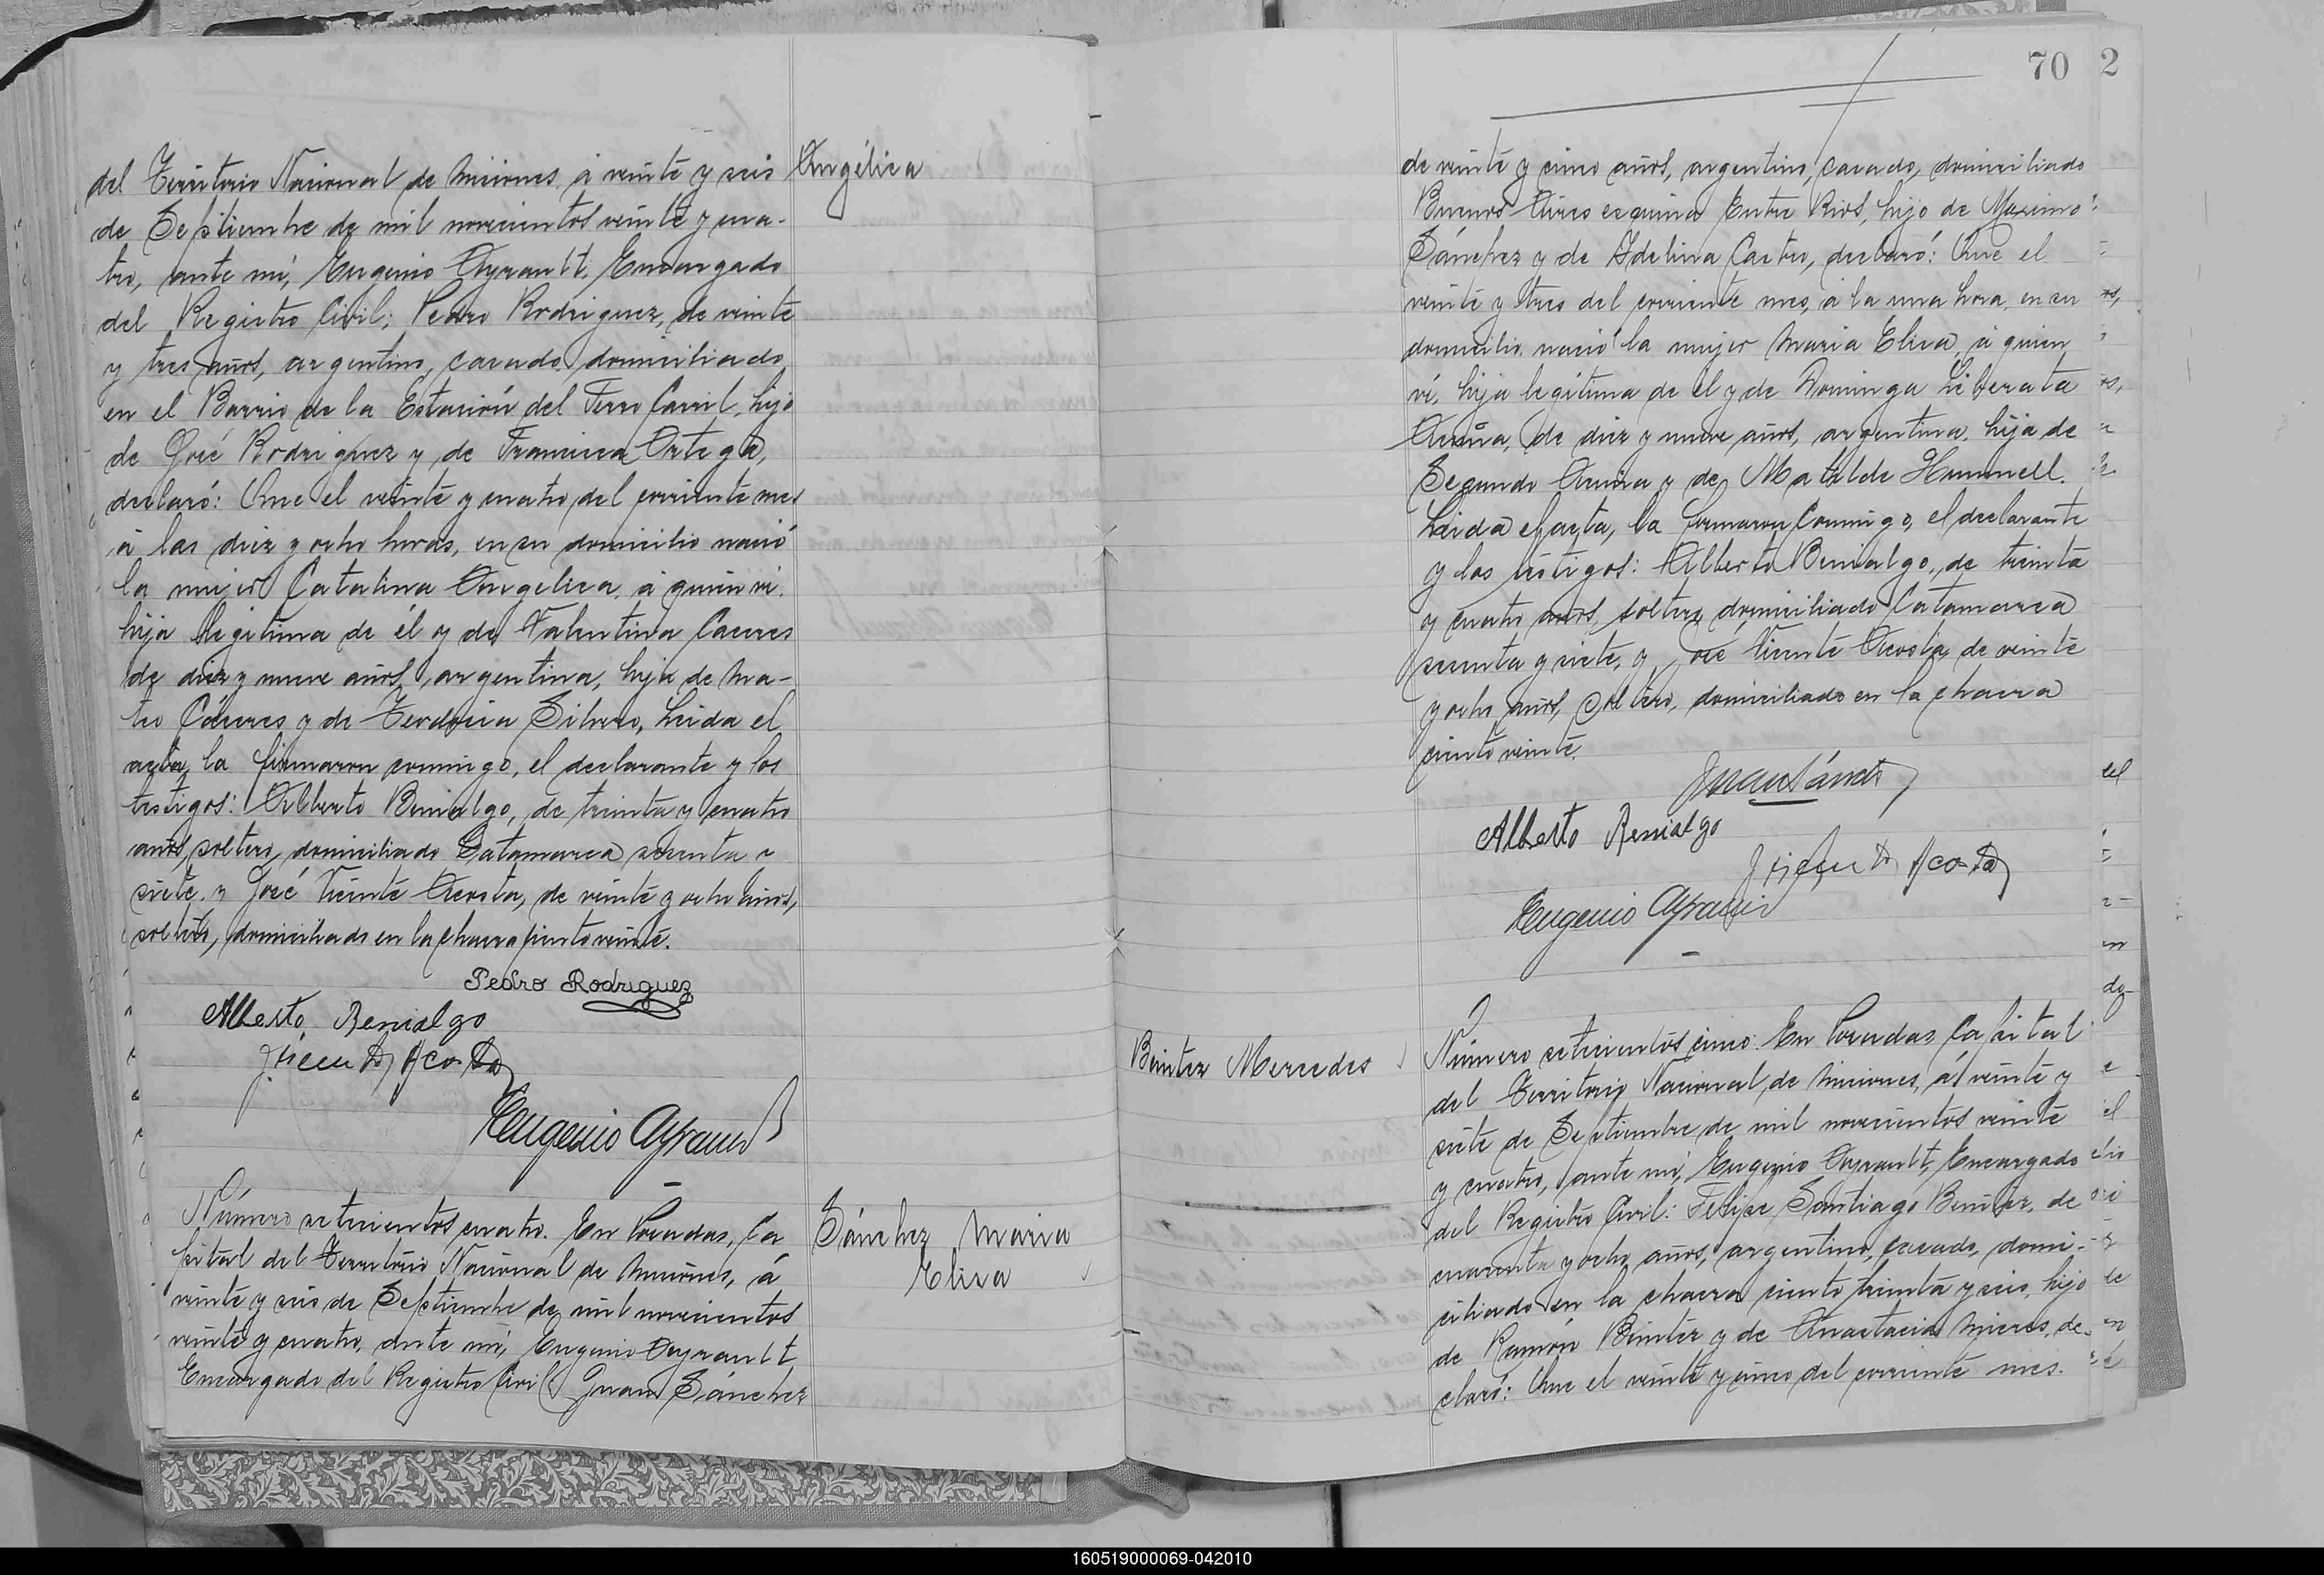 Angélica
del Territorio Nacional de Misiones, á veinte y seis
de Septiembre de mil novecientos veinte y cua-
tro, ante mí, Eugenio Ayrault, Encargado
del Registro Civil; Pedro Rodriguez, de veinte
y tres años, argentino, casado, domiciliado
en el Barrio de la Estación del Ferro Carril, hijo
de José Rodriguez y de Francisca Ortega,
declaró: Que el veinte y cuatro del corriente mes
á las diez y ocho horas, en su domicilio nació
la mujer Catalina Angelica, á quien ví.
hija legitima de él y de Valentina Caceres
de diez y nueve años, argentina, hija de Ma-
teo Cáceres y de Teodosia Silvero, Leida el
acta, la firmaron conmigo, el declarante y los
testigos: Alberto Benialgo, de treinta y cuatro
años, soltero, domiciliado Catamarca sesenta y
siete y José Vicente Acosta, de veinte y ocho años,
soltero, domiciliado en la chacra ciento veinte.
Pedro Rodriguez
Alberto Benialgo
J Vicente Acosta
Eugenio Ayrault
Sánchez Maria
Elisa
Número setecientos cuatro. En Posadas, Ca
pital del Territorio Nacional de Misiones, á
veinte y seis de Septiembre de mil novecientos
veinte y cuatro, ante mí, Eugenio Ayrault
Encargado del Registro Civil Juan Sánchez
70 2
de veinte y cinco años, argentino, casado, domiciliado
Buenos Aires esquina Entre Rios, hijo de Maximo
Sánchez y de Adelina Castro, declaró: Que el
veinte y tres del corriente mes, á la una hora, en su
domicilio, nació la mujer Maria Elisa, á quien
ví, hija legítima de él y de Dominga Liberata
de diez y nueve años, argentina, hija de
Segundo y de Matilde Hummell.
Leida el acta, la firmaron conmigo, el declarante
y los testigos: Alberto Benialgo, de treinta
y cuatro años, soltero, domiciliado Catamarca
sesenta y siete, y José Vicente Acosta, de veinte
y ocho años, soltero, domiciliado en la chacra
ciento veinte.
Juan Sánchez
Alberto Benialgo
J Vicente Acosta
Eugenio Ayrault
Benitez Mercedes
Número setecientos cinco: En Posadas, Capital
del Territorio Nacional de Misiones, á veinte y
siete de Septiembre de mil novecientos veinte
y cuatro, ante mí, Eugenio Ayrault, Encargado
del Registro Civil: Felipe Santiago Benitez, de
cuarenta y ocho años, argentino, casado, domi-
ciliado en la chacra ciento treinta y seis, hijo
de Ramón Benitez y de Anastacia Mieres, de-
claró: Que el veinte y cinco del corriente mes.
160519000069-042010